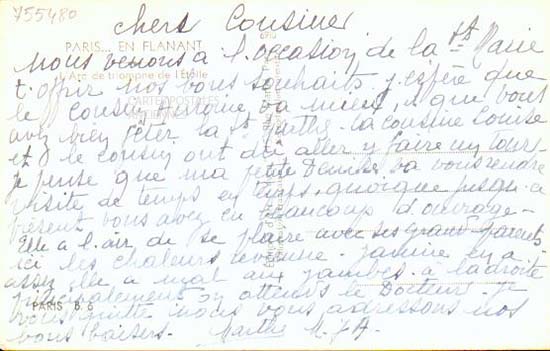 755480
chers Cousins
PARIS... EN FLANANT
nous venons à l'occasion de la Ste Marie
L'Arc de triomphe de l'Etoile
t'offrir nos vous souhaits. j'espère que
le cousin va mieux, que vous
avez bien fêter la St . la cousine Louise
et le cousin ont dû aller y faire un tour
je pense que ma petite Denise va vous rendre
visite de temps en temps, quoique jusqu'à
présent vous avez eu beaucoup d'ouvrage -
Elle a l'air de se plaire avec ses grands parents.
ici les chaleurs revienne. Janine en a
assez elle a mal aux jambes. à la droite
principalement on attend le Docteur. Je
vous quitte nous vous adressons nos
PARIS B 6
bons baisers. Marthe